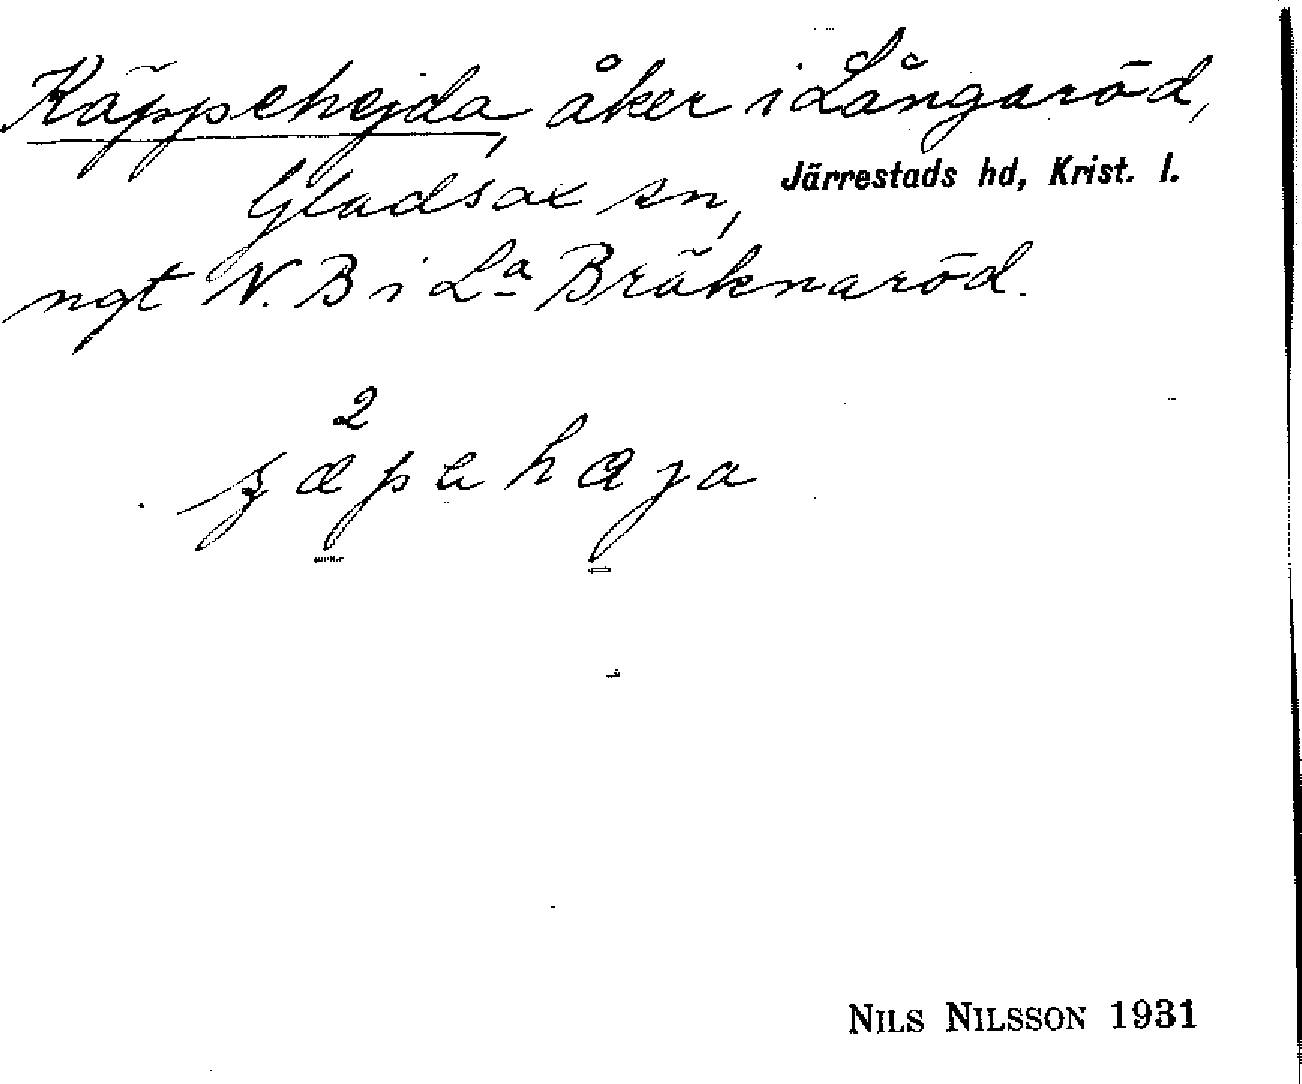 Käppehejda, åker i Långaröd,
Gladsax sn, Järrestads hd, Krist. l.
ngt N. B i La Bräknaröd.
NILS NILSSON 1931